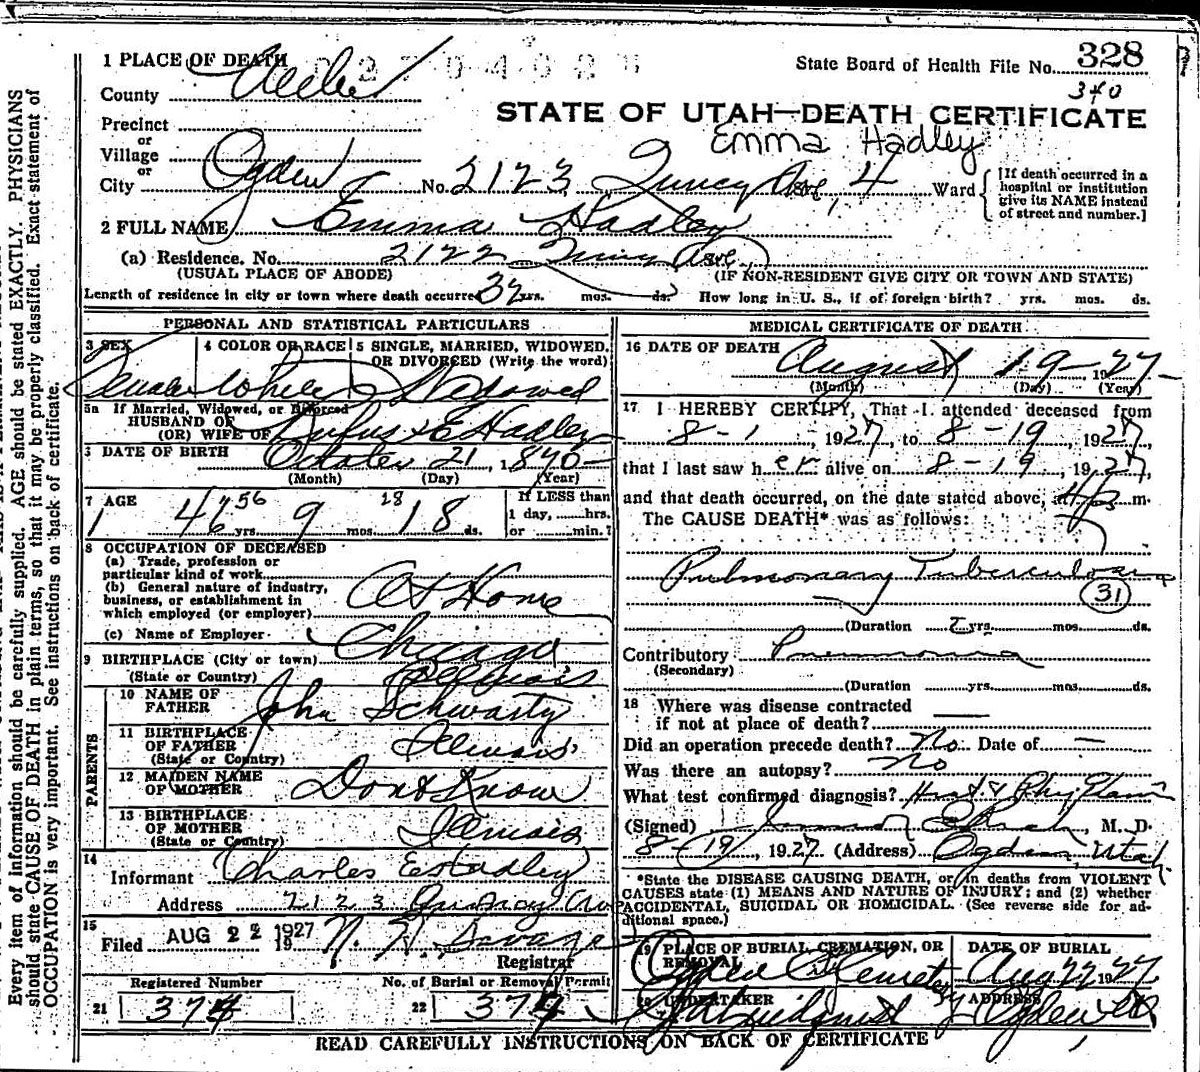 Every item of information should be carefully supplied. AGE should be stated EXACTLY. PHYSICIANS
should state CAUSE OF DEATH in plain terms, so that it may be properly classified. Exact statement of
OCCUPATION is very important. See instructions on back of certificate.
1 PLACE OF DEATH
State Board of Health File No. 328
340
County Weber
STATE OF UTAH—DEATH CERTIFICATE
Emma Hadley
Precinct
or
Village
or
City Ogden No. 2123 Quincy Ave, 4 Ward
[If death occurred in a
hospital or institution
give its NAME instead
of street and number.]
2 FULL NAME Emma Hadley
(a) Residence. No. 2122 Quincy Ave.
(USUAL PLACE OF ABODE) (IF NON-RESIDENT GIVE CITY OR TOWN AND STATE)
Length of residence in city or town where death occurred yrs. mos. ds. How long in U. S., if of foreign birth? yrs. mos. ds.
PERSONAL AND STATISTICAL PARTICULARS
3 SEX 4 COLOR OR RACE 5 SINGLE, MARRIED, WIDOWED,
OR DIVORCED (Write the word)
Female White Widowed
5a If Married, Widowed, or Divorced
HUSBAND OF
(OR) WIFE OF Rufus E Hadley
DATE OF BIRTH October 21, 1870
(Month) (Day) (Year)
7 AGE 56 yrs. 9 mos. 18 ds.
If LESS than
1 day, hrs.
or min.?
8 OCCUPATION OF DECEASED
(a) Trade, profession or
particular kind of work
(b) General nature of industry,
business, or establishment in
which employed (or employer) At Home
(c) Name of Employer
9 BIRTHPLACE (City or town) Chicago
(State or Country) Illinois
PARENTS
10 NAME OF
FATHER John Schwartz
11 BIRTHPLACE
OF FATHER Illinois
(State or Country)
12 MAIDEN NAME
OF MOTHER Dont Know
13 BIRTHPLACE
OF MOTHER Illinois
(State or Country)
14
Informant Charles E Hadley
Address 2123 Quincy Ave
15
Filed AUG 22 1927
Registrar
Registered Number No. of Burial or Removal Permit
21 374 22 374
MEDICAL CERTIFICATE OF DEATH
16 DATE OF DEATH August 19-1927
(Month) (Day) (Year)
17 I HEREBY CERTIFY, That I attended deceased from
8-1, 1927, to 8-19, 1927,
that I last saw her alive on 8-19, 1927
and that death occurred, on the date stated above, m.
The CAUSE DEATH* was as follows:
Pulmonary Tuberculosis
31
(Duration 2 yrs. mos. ds.
Contributory Pneumonia
(Secondary)
(Duration yrs. mos. ds.
18 Where was disease contracted
if not at place of death?
Did an operation precede death? No Date of —
Was there an autopsy? No
What test confirmed diagnosis?
(Signed) , M. D.
8-19, 1927 (Address) Ogden, Utah
*State the DISEASE CAUSING DEATH, or in deaths from VIOLENT
CAUSES state (1) MEANS AND NATURE OF INJURY; and (2) whether
ACCIDENTAL, SUICIDAL OR HOMICIDAL. (See reverse side for ad-
ditional space.)
19 PLACE OF BURIAL, CREMATION, OR
REMOVAL DATE OF BURIAL
Ogden City Cemetery Aug 22 1927
20 UNDERTAKER ADDRESS
Lindquist Ogden
READ CAREFULLY INSTRUCTIONS ON BACK OF CERTIFICATE